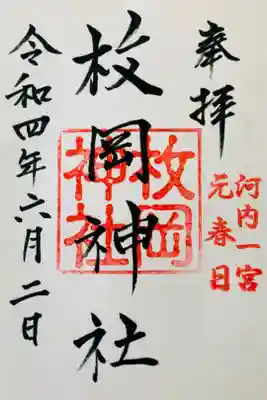 奉拝
河内一宮
元春日
枚岡神社
枚岡
神社
令和四年六月二日